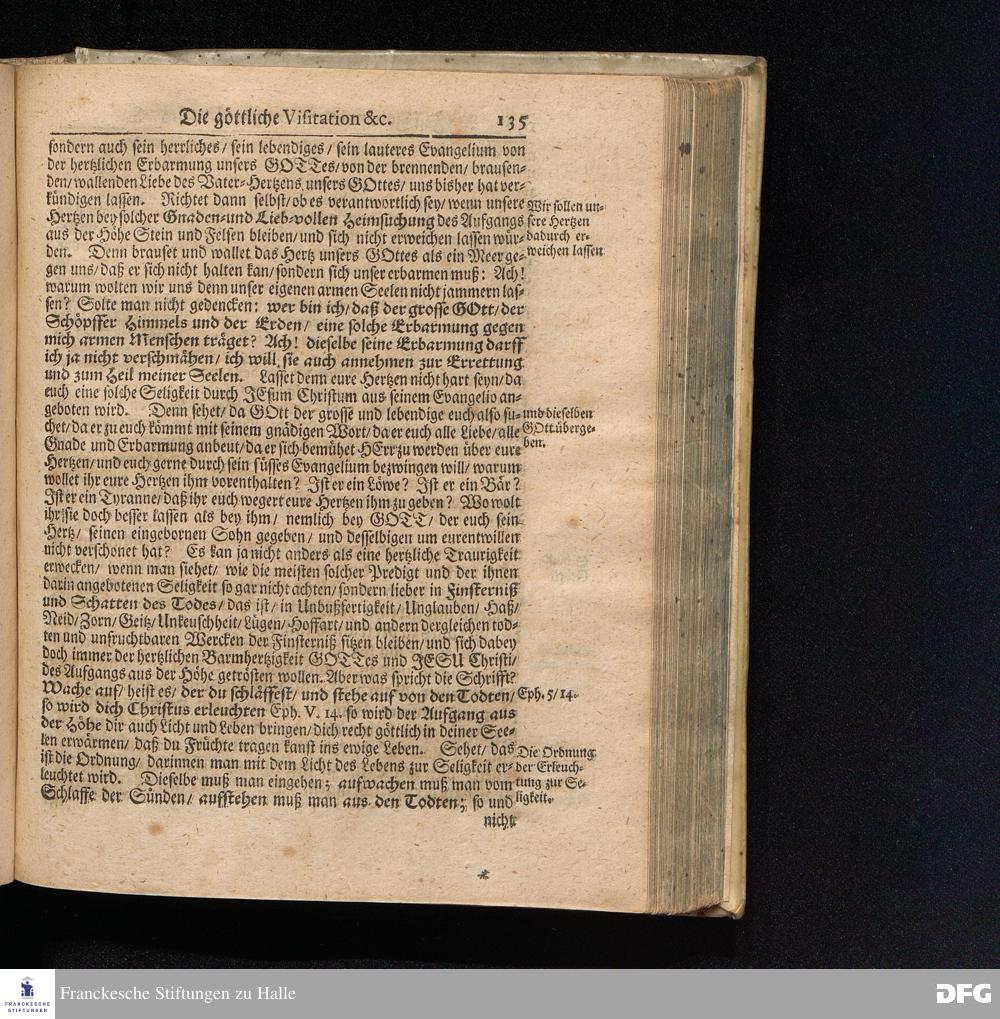 Die göttliche Visitation &c. 135
sondern auch sein herrliches/ sein lebendiges/ sein lauteres Evangelium von
der hertzlichen Erbarmung unsers GOTTes/ von der brennenden/ brausen-
den/ wallenden Liebe des Vater-Hertzens unsers GOttes/ uns bisher hat ver-
kündigen lassen. Richtet dann selbst/ ob es verantwortlich sey/ wenn unsere
Hertzen bey solcher Gnaden-und Lieb-vollen Heimsuchung des Aufgangs
aus der Höhe Stein und Felsen bleiben/ und sich nicht erweichen lassen wür-
den. Denn brauset und wallet das Hertz unsers GOttes als ein Meer ge-
gen uns/ daß er sich nicht halten kan/ sondern sich unser erbarmen muß: Ach!
warum wolten wir uns denn unser eigenen armen Seelen nicht jammern las-
sen? Solte man nicht gedencken: wer bin ich/ daß der grosse GOtt/ der
Schöpffer Himmels und der Erden/ eine solche Erbarmung gegen
mich armen Menschen träget? Ach! dieselbe seine Erbarmung darff
ich ja nicht verschmähen/ ich will sie auch annehmen zur Errettung
und zum Heil meiner Seelen. Lasset denn eure Hertzen nicht hart seyn/ da
euch eine solche Seligkeit durch JEsum Christum aus seinem Evangelio an-
geboten wird. Denn sehet/ da GOtt der grosse und lebendige euch also su-
chet/ da er zu euch kömmt mit seinem gnädigen Wort/ da er euch alle Liebe/ alle
Gnade und Erbarmung anbeut/ da er sich bemühet HErr zu werden über eure
Hertzen/ und euch gerne durch sein süsses Evangelium bezwingen will/ warum
wollet ihr eure Hertzen ihm vorenthalten? Ist er ein Löwe? Ist er ein Bär?
Ist er ein Tyranne/ daß ihr euch wegert eure Hertzen ihm zu geben? Wo wolt
ihr sie doch besser lassen als bey ihm/ nemlich bey GOTT/ der euch sein
Hertz/ seinen eingebornen Sohn gegeben/ und desselbigen um eurentwillen
nicht verschonet hat? Es kan ja nicht anders als eine hertzliche Traurigkeit
erwecken/ wenn man siehet/ wie die meisten solcher Predigt und der ihnen
darin angebotenen Seligkeit so gar nicht achten/ sondern lieber in Finsterniß
und Schatten des Todes/ das ist/ in Unbußfertigkeit/ Unglauben/ Haß/
Neid/ Zorn/ Geitz/ Unkeuschheit/ Lügen/ Hoffart/ und andern dergleichen tod-
ten und unfruchtbaren Wercken der Finsterniß sitzen bleiben/ und sich dabey
doch immer der hertzlichen Barmhertzigkeit GOTTes und JESU Christi/
des Aufgangs aus der Höhe getrösten wollen. Aber was spricht die Schrifft?
Wache auf/ heist es/ der du schläffest/ und stehe auf von den Todten/
so wird dich Christus erleuchten Eph. V. 14. so wird der Aufgang aus
der Höhe dir auch Licht und Leben bringen/ dich recht göttlich in deiner See-
len erwärmen/ daß du Früchte tragen kanst ins ewige Leben. Sehet/ das
ist die Ordnung/ darinnen man mit dem Licht des Lebens zur Seligkeit er-
leuchtet wird. Dieselbe muß man eingehen; aufwachen muß man vom
Schlaffe der Sünden/ aufstehen muß man aus den Todten; so und
nicht
Wir sollen un-
sere Hertzen
dadurch er-
weichen lassen
und dieselben
GOtt überge-
ben.
Eph. 5/ 14.
Die Ordnung
der Erleuch-
tung zur Se-
ligkeit.
*
FRANCKESCHE
STIFTUNGEN
Franckesche Stiftungen zu Halle
DFG